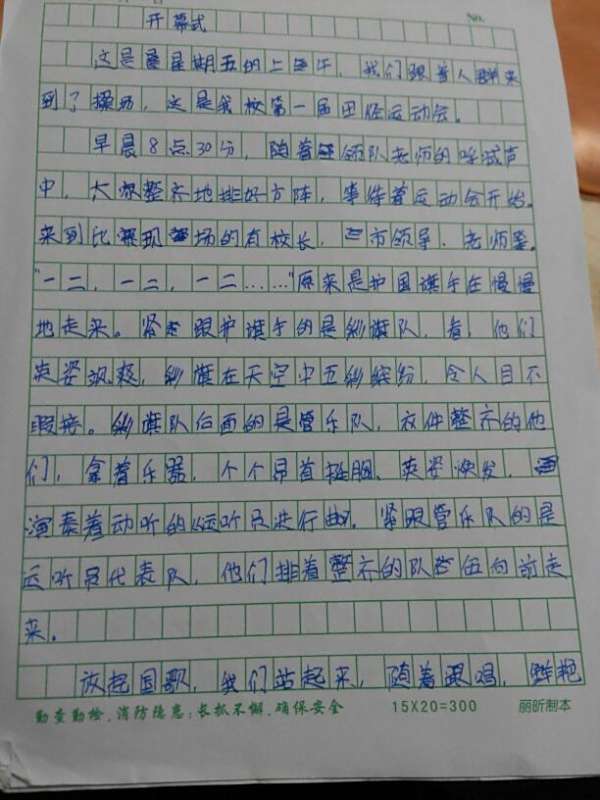 No.
开幕式
这是星期五的上午，我们跟着人群来
到了操场，这是我校第一届田径运动会。
早晨8点30分，随着领队老师的呼喊声
中，大家整齐地排好方阵，等待着运动会开始。
来到比赛现场的有校长，市领导，老师等。
“一二，一二，一二……”原来是护国旗手在慢慢
地走来。紧跟护旗手的是彩旗队，看，他们
英姿飒爽，彩旗在天空中五彩缤纷，令人目不
暇接。彩旗队后面的是管乐队，衣件整齐的他
们，拿着乐器，个个昂首挺胸，英姿焕发，
演奏着动听的《运听员进行曲》。紧跟管乐队的是
运听员代表队，他们排着整齐的队伍向前走
来。
放起国歌，我们站起来，随着跟唱，鲜艳
勤查勤检，消防隐患；长抓不懈，确保安全 15X20=300 丽昕制本